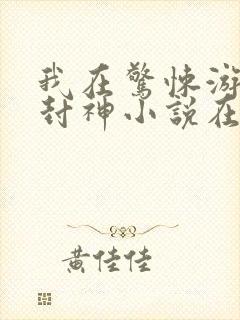 我在驚悚游
封神小說在
黃佳佳